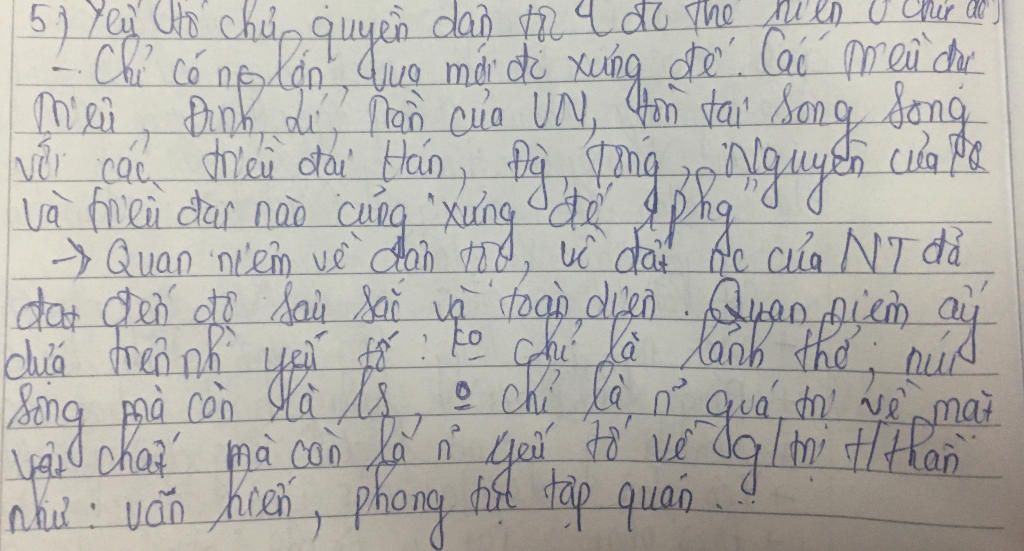 5) Yếu tố chủ quyền dân tộc đc thể hiện ở chữ đế
- Chỉ có nc lớn, vua mới đc xưng đế. Các triều đại
Triệu, Đinh, Lí, Trần của VN, tồn tại song song
với các triều đại Hán, Đg, Tống, Nguyên của
và triều đại nào cũng "xưng đế 1 phg"
-> Quan niệm về dân tộc, về đất nc của NT đã
đạt đến độ sâu sắc và toàn diện. Quan niệm ấy
dựa trên nh yếu tố: ko chỉ là lãnh thổ, núi
sông mà còn là LS, o chỉ là n~ giá trị về mặt
vật chất mà còn là n~ yếu tố về g/trị t/thần
như: văn hiến, phong tục tập quán...